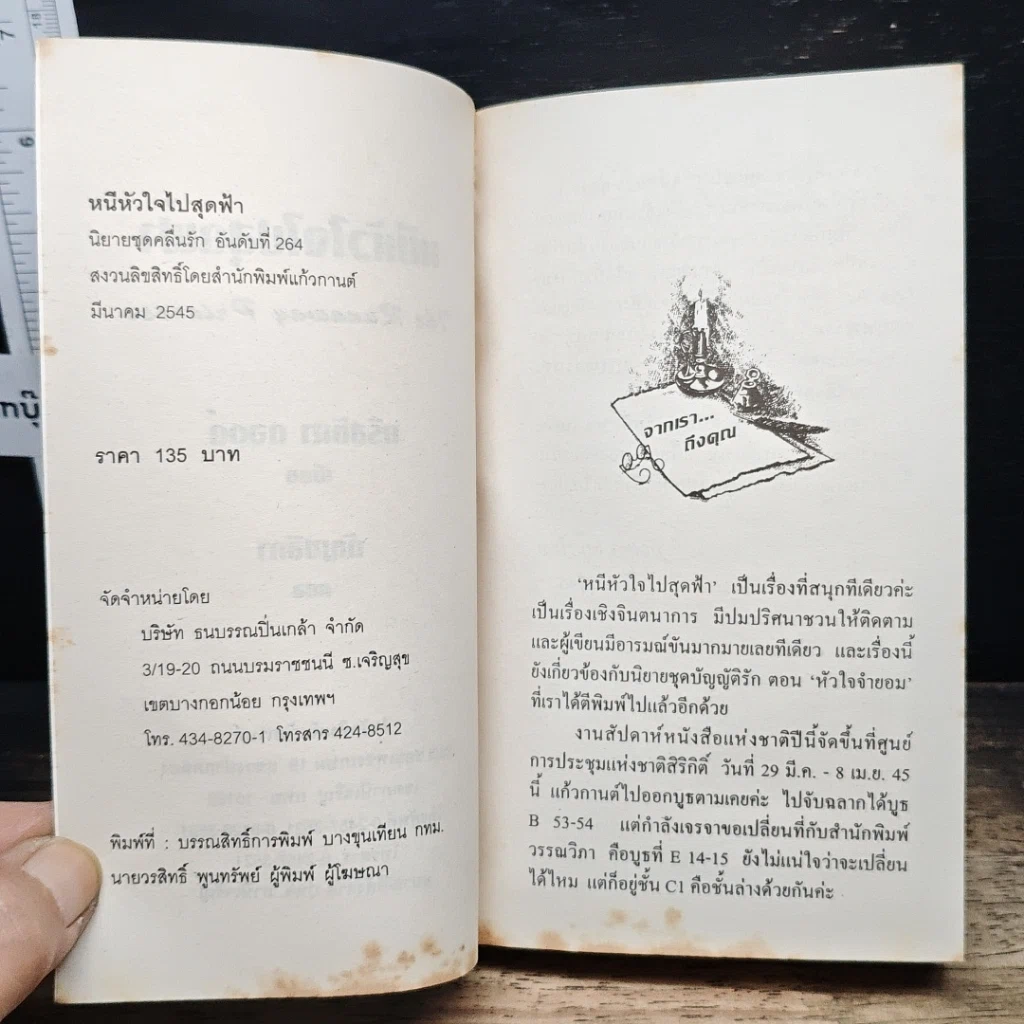 หนีหัวใจไปสุดฟ้า
นิยายชุดคลื่นรัก อันดับที่ 264
สงวนลิขสิทธิ์โดยสำนักพิมพ์แก้วกานต์
มีนาคม 2545
ราคา 135 บาท
จัดจำหน่ายโดย
บริษัท ธนบรรณปิ่นเกล้า จำกัด
3/19-20 ถนนบรมราชชนนี ซ.เจริญสุข
เขตบางกอกน้อย กรุงเทพฯ
โทร. 434-8270-1 โทรสาร 424-8512
พิมพ์ที่ : บรรณสิทธิ์การพิมพ์ บางขุนเทียน กทม.
นายวรสิทธิ์ พูนทรัพย์ ผู้พิมพ์ ผู้โฆษณา
จากเรา...
ถึงคุณ
'หนีหัวใจไปสุดฟ้า' เป็นเรื่องที่สนุกทีเดียวค่ะ
เป็นเรื่องเชิงจินตนาการ มีปมปริศนาชวนให้ติดตาม
และผู้เขียนมีอารมณ์ขันมากมายเลยทีเดียว และเรื่องนี้
ยังเกี่ยวข้องกับนิยายชุดบัญญัติรัก ตอน 'หัวใจจำยอม'
ที่เราได้ตีพิมพ์ไปแล้วอีกด้วย
งานสัปดาห์หนังสือแห่งชาติปีนี้จัดขึ้นที่ศูนย์
การประชุมแห่งชาติสิริกิติ์ วันที่ 29 มี.ค. - 8 เม.ย. 45
นี้ แก้วกานต์ไปออกบูธตามเคยค่ะ ไปจับฉลากได้บูธ
B 53-54 แต่กำลังเจรจาขอเปลี่ยนที่กับสำนักพิมพ์
วรรณวิภา คือบูธที่ E 14-15 ยังไม่แน่ใจว่าจะเปลี่ยน
ได้ไหม แต่ก็อยู่ชั้น C1 คือชั้นล่างด้วยกันค่ะ